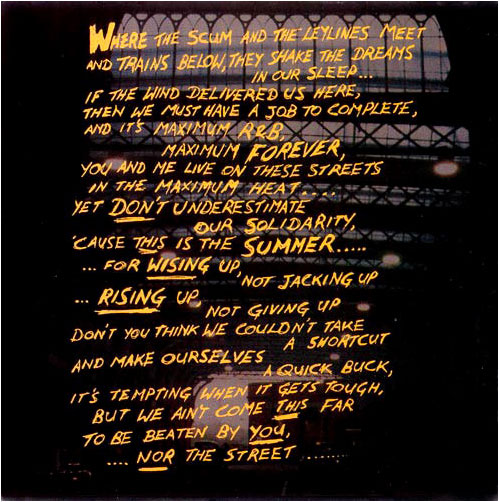 WHERE THE SCUM AND THE LEYLINES MEET
AND TRAINS BELOW, THEY SHAKE THE DREAMS
IN OUR SLEEP...
IF THE WIND DELIVERED US HERE,
THEN WE MUST HAVE A JOB TO COMPLETE,
AND IT'S MAXIMUM R&B,
MAXIMUM FOREVER,
YOU AND ME LIVE ON THESE STREETS
IN THE MAXIMUM HEAT....
YET DON'T UNDERESTIMATE
OUR SOLIDARITY,
'CAUSE THIS IS THE SUMMER.....
... FOR WISING UP,
NOT JACKING UP
... RISING UP,
NOT GIVING UP
DON'T YOU THINK WE COULDN'T TAKE
A SHORTCUT
AND MAKE OURSELVES
A QUICK BUCK,
IT'S TEMPTING WHEN IT GETS TOUGH,
BUT WE AIN'T COME THIS FAR
TO BE BEATEN BY YOU,
.... NOR THE STREET ........